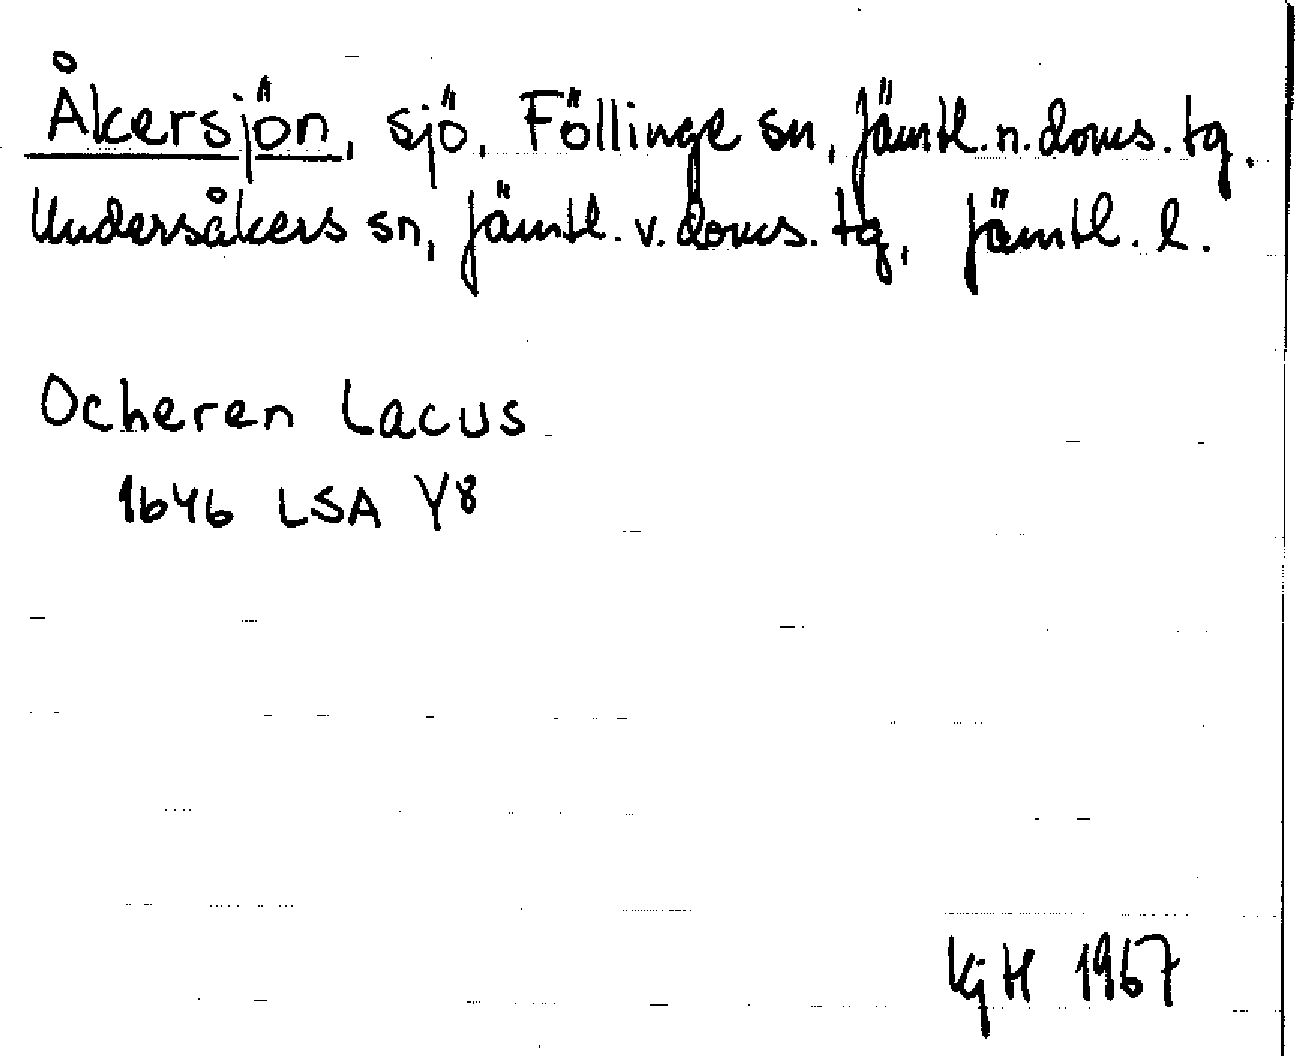 Åkersjön, sjö, Föllinge sn, Jämtl. n. doms. tg.
Undersåkers sn, Jämtl. v. doms. tg, Jämtl. l.
Ocheren Lacus
1646 LSA Y8
KjH 1967